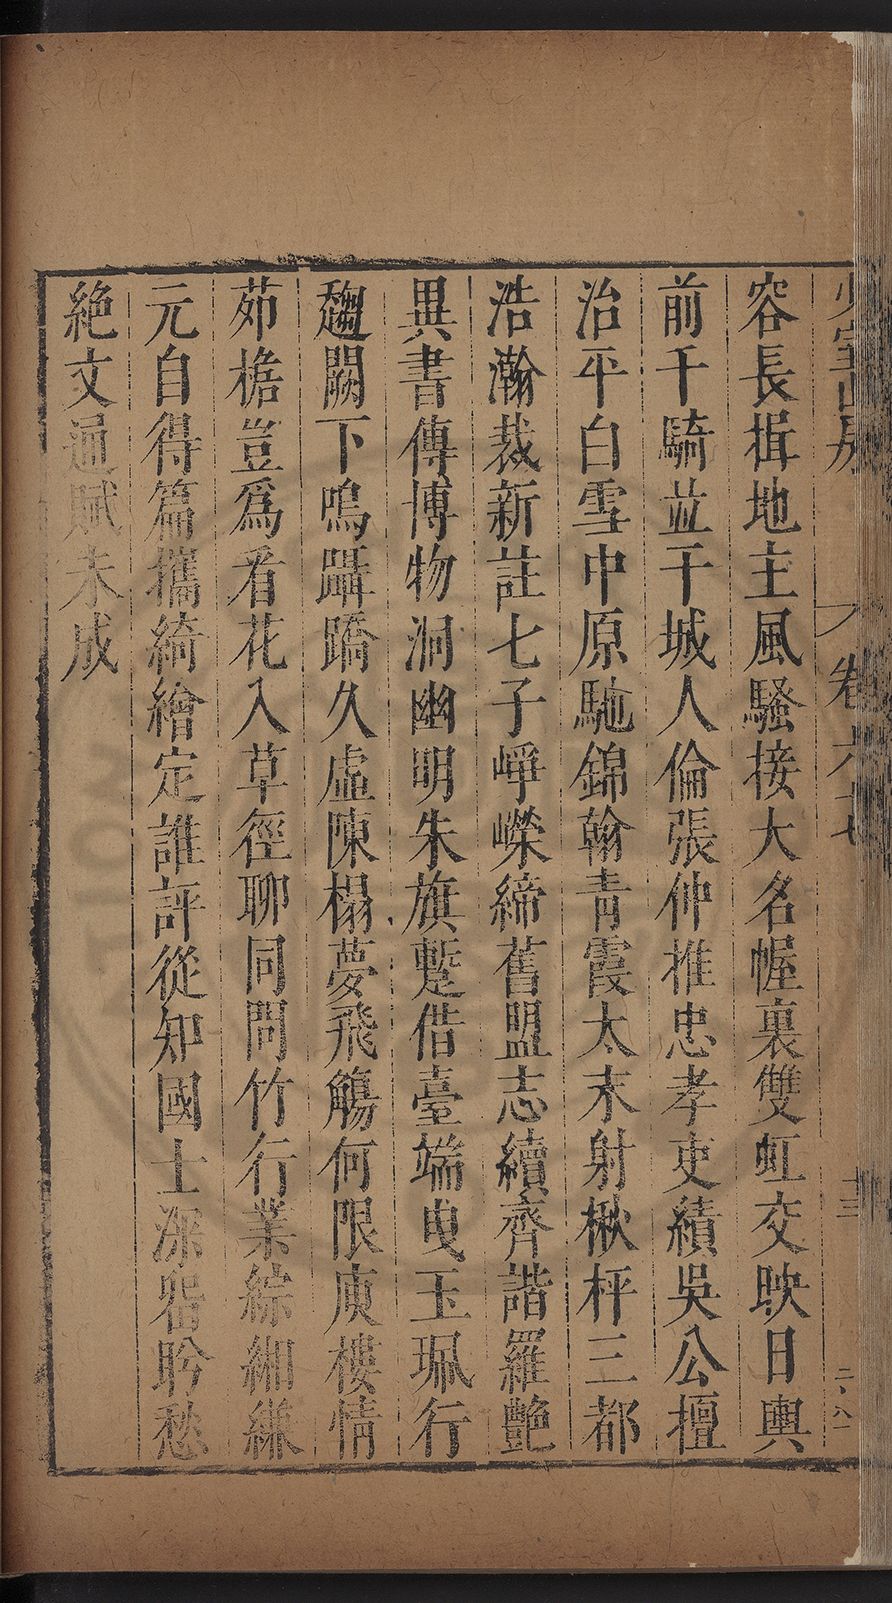 少室山房 卷六七 十三 二八一
容長揖地主風騷接大名幄裏雙虹交映日輿
前千騎並干城人倫張仲推忠孝吏績吳公擅
治平白雪中原馳錦翰青霞太末射楸枰三都
浩瀚裁新註七子崢嶸締舊盟志續齊諧羅艶
異書傳博物洞幽明朱旗蹔借臺端曳玉珮行
趨闕下鳴躡蹻久虛陳榻夢飛觴何限庾樓情
茆檐豈爲看花入草徑聊同問竹行業綜緗縑
元自得篇攜綺繪定誰評從知國士深畱盻愁
絶文通賦未成